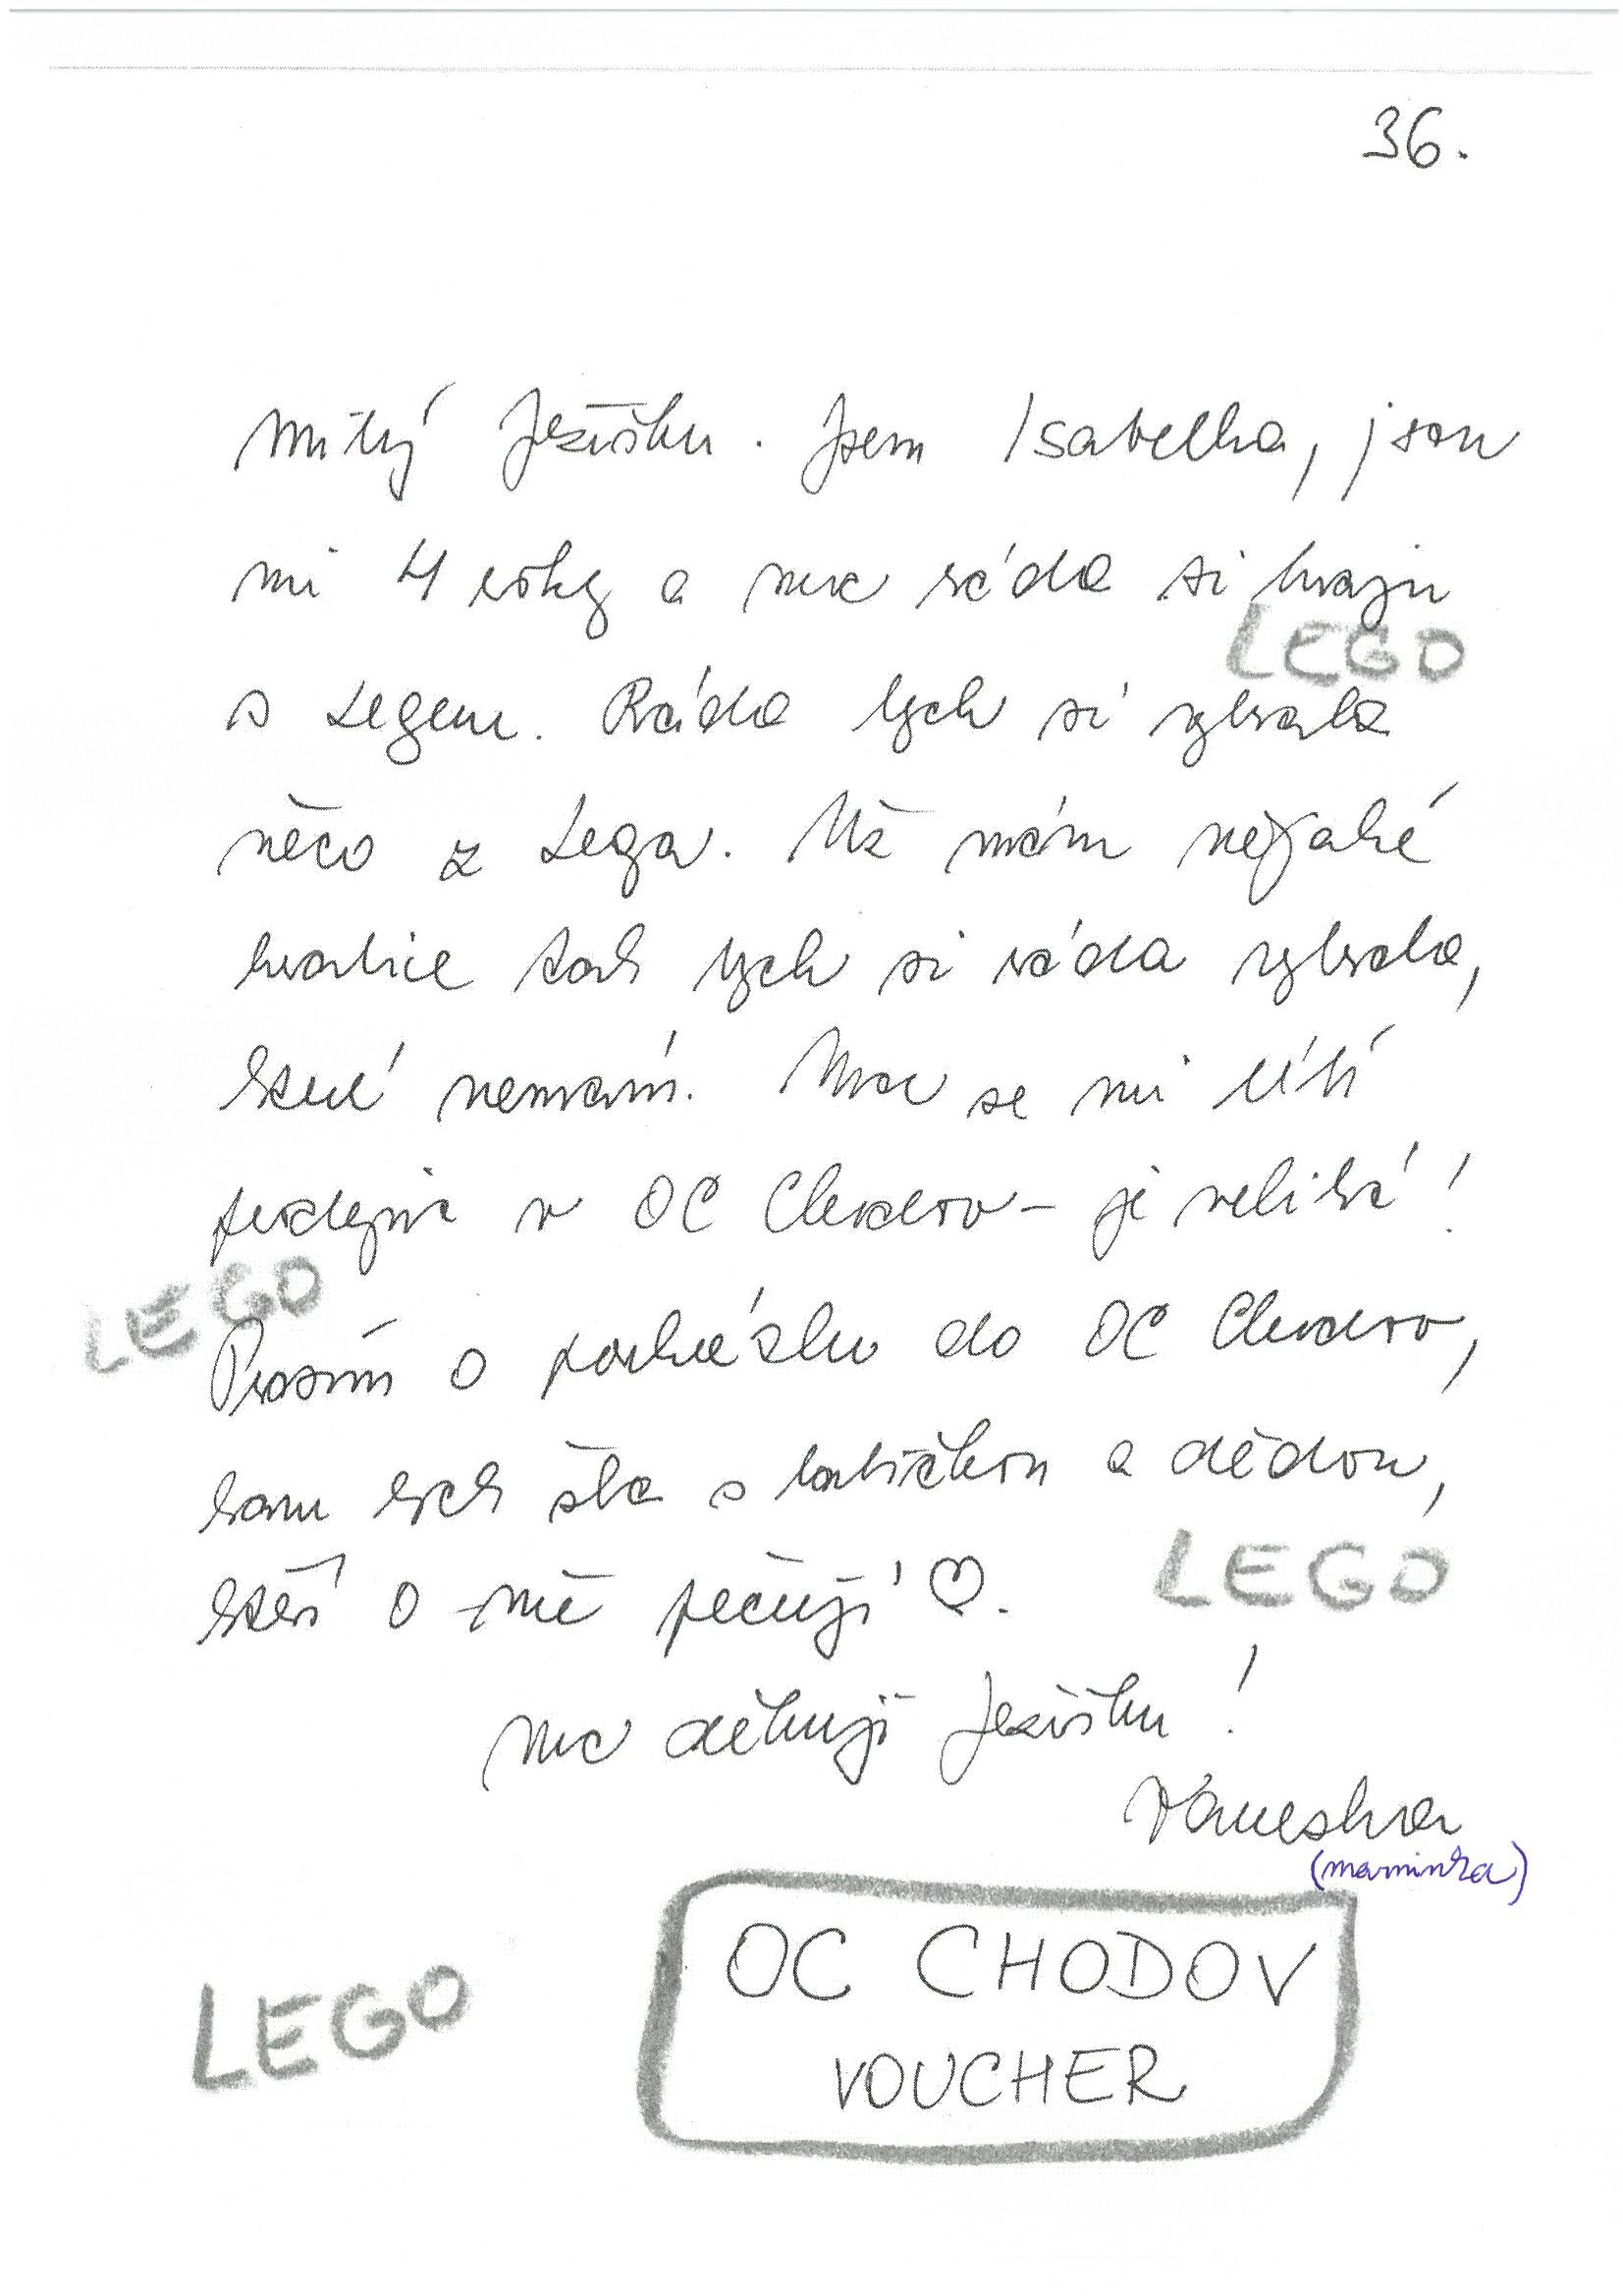 36.
Milý Ježíšku. Jsem Isabelka, jsou
mi 4 roky a moc ráda si hraju
LEGO
s Legem. Ráda bych si vybrala
něco z Lega. Už mám nějaké
krabice tak bych si ráda vybrala,
které nemám. Moc se mi líbí
prodejna v OC Chodov - je veliká!
LEGO
Prosím o poukázku do OC Chodov,
kam bych šla s babičkou a dědou,
kteří o mě pečují ♡.
LEGO
Moc děkuji Ježíšku!
(maminka)
OC CHODOV
LEGO
VOUCHER